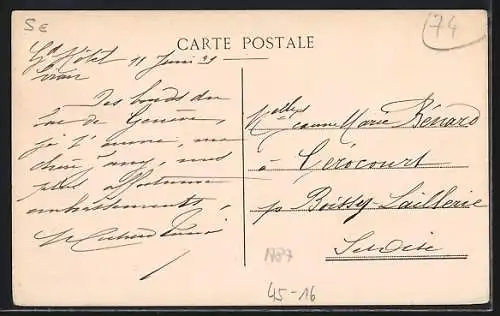 5€
74
CARTE POSTALE
Gd Hôtel
11 Juin
Des bords du
Lac de Genève,
je t'envoie, ma
chère, mes
plus affectueux
embrassements,
Melle Jeanne Marie Bénard
à Gérocourt
pr Boissy Laillerie
S. et Oise
1987
45-16